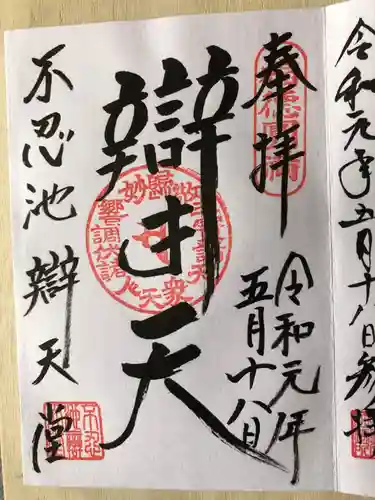 令和元年五月十八日参拝
奉拝
令和元年
五月十八日
辯才天
不忍池辯天堂